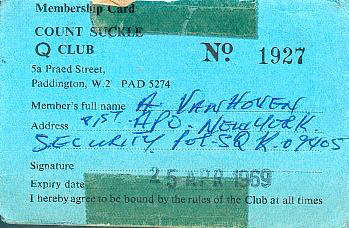 Membership Card
COUNT SUCKLE
Q CLUB
No. 1927
5a Praed Street,
Paddington, W.2 PAD 5274
Member's full name A VANHOVEN
Address APO. NEW YORK.
SECURITY SQ K. 09405
Signature
Expiry date 25 APR 1969
I hereby agree to be bound by the rules of the Club at all times